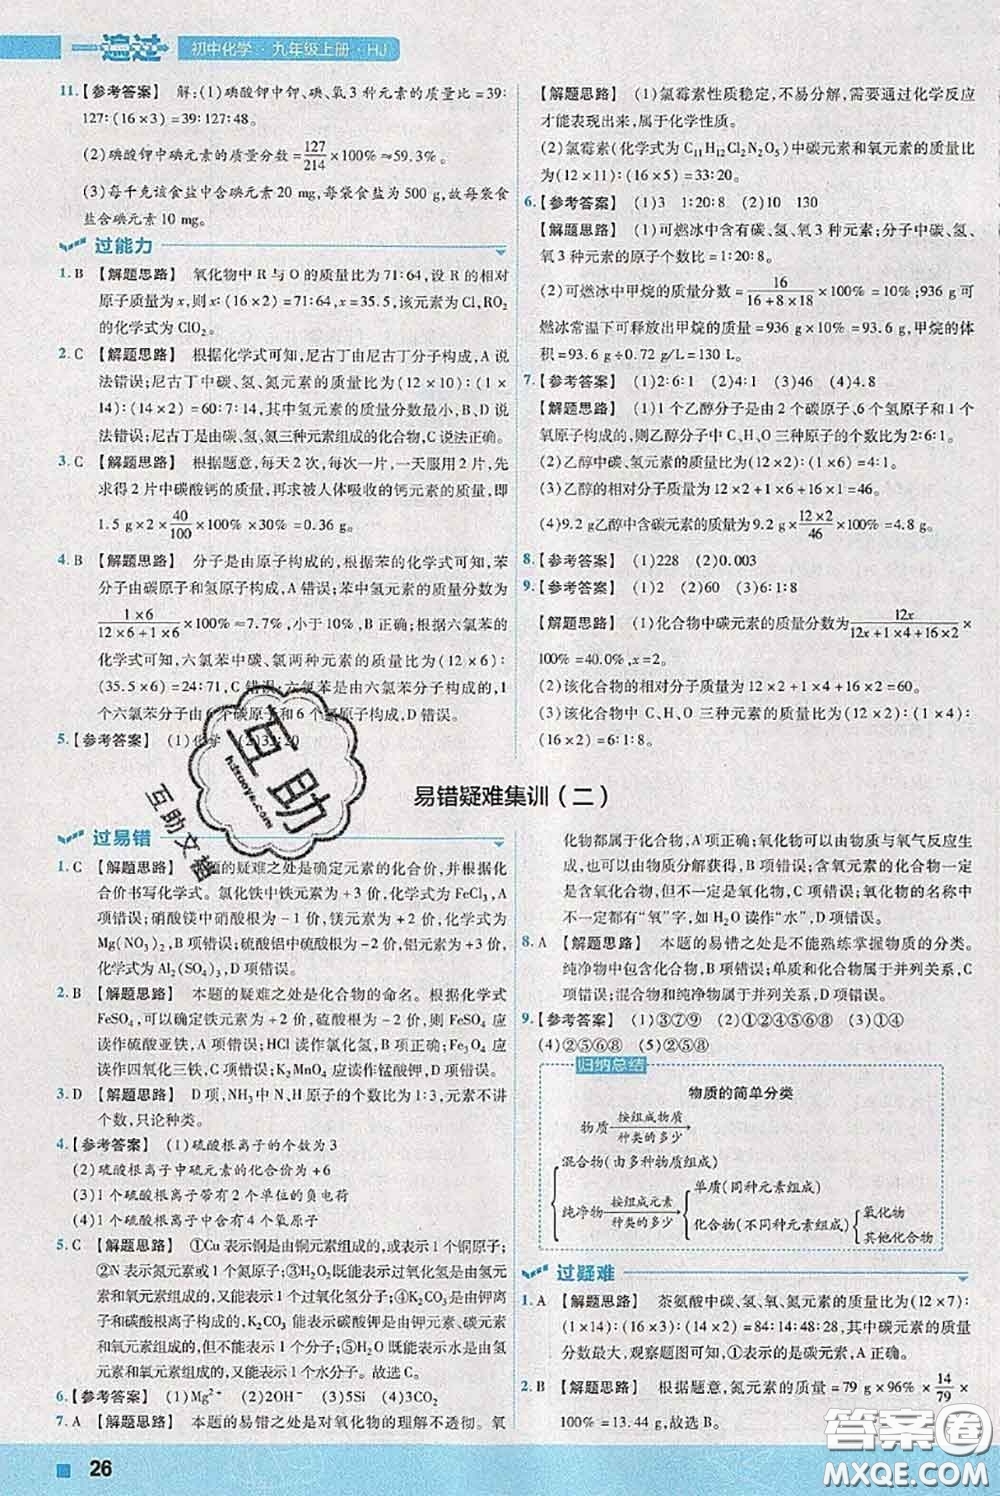 一遍过 初中化学·九年级上册·HJ
11.【参考答案】 解:(1)碘酸钾中钾、碘、氧3种元素的质量比=39:
127:(16×3)=39:127:48。
(2)碘酸钾中碘元素的质量分数=127/214×100%≈59.3%。
(3)每千克该食盐中含碘元素20 mg,每袋食盐为500 g,故每袋食
盐含碘元素10 mg。
过能力
1.B 【解题思路】 氧化物中R与O的质量比为71:64,设R的相对
原子质量为x,则x:(16×2)=71:64,x=35.5,该元素为Cl,RO₂
的化学式为ClO₂。
2.C 【解题思路】 根据化学式可知,尼古丁由尼古丁分子构成,A说
法错误;尼古丁中碳、氢、氮元素的质量比为(12×10):(1×
14):(14×2)=60:7:14,其中氢元素的质量分数最小,B、D说
法错误;尼古丁是由碳、氢、氮三种元素组成的化合物,C说法正确。
3.C 【解题思路】 根据题意,每天2次,每次一片,一天服用2片,先
求得2片中碳酸钙的质量,再求被人体吸收的钙元素的质量,即
1.5 g×2×40/100×100%×30%=0.36 g。
4.B 【解题思路】 分子是由原子构成的,根据苯的化学式可知,苯
分子由碳原子和氢原子构成,A错误;苯中氢元素的质量分数为
1×6/(12×6+1×6)×100%≈7.7%,小于10%,B正确;根据六氯苯的
化学式可知,六氯苯中碳、氯两种元素的质量比为(12×6):
(35.5×6)=24:71,C错误;六氯苯是由六氯苯分子构成的,1
个六氯苯分子由6个碳原子和6个氯原子构成,D错误。
5.【参考答案】 (1)化学 (2)33:20
【解题思路】 (1)氯霉素性质稳定,不易分解,需要通过化学反应
才能表现出来,属于化学性质。
(2)氯霉素(化学式为C₁₁H₁₂Cl₂N₂O₅)中碳元素和氧元素的质量比
为(12×11):(16×5)=33:20。
6.【参考答案】 (1)3 1:20:8 (2)10 130
【解题思路】 (1)可燃冰中含有碳、氢、氧3种元素;分子中碳、氢、
氧3种元素的质量比=1:20:8。
(2)可燃冰中甲烷的质量分数=16/(16+8×18)×100%=10%;936 g可
燃冰常温下可释放出甲烷的质量=936 g×10%=93.6 g,甲烷的体
积=93.6 g÷0.72 g/L=130 L。
7.【参考答案】 (1)2:6:1 (2)4:1 (3)46 (4)4.8
【解题思路】 (1)1个乙醇分子是由2个碳原子、6个氢原子和1个
氧原子构成的,则乙醇分子中C、H、O三种原子的个数比为2:6:1。
(2)乙醇中碳、氢元素的质量比为(12×2):(1×6)=4:1。
(3)乙醇的相对分子质量为12×2+1×6+16×1=46。
(4)9.2 g乙醇中含碳元素的质量为9.2 g×12×2/46×100%=4.8 g。
8.【参考答案】 (1)228 (2)0.003
9.【参考答案】 (1)2 (2)60 (3)6:1:8
【解题思路】 (1)化合物中碳元素的质量分数为12x/(12x+1×4+16×2)×
100%=40.0%,x=2。
(2)该化合物的相对分子质量为12×2+1×4+16×2=60。
(3)该化合物中C、H、O三种元素的质量比为(12×2):(1×4):
(16×2)=6:1:8。
易错疑难集训(二)
过易错
1.C 【解题思路】 本题的疑难之处是确定元素的化合价,并根据化
合价书写化学式。氯化铁中铁元素为+3价,化学式为FeCl₃,A
项错误;硝酸镁中硝酸根为-1价,镁元素为+2价,化学式为
Mg(NO₃)₂,B项错误;硫酸铝中硫酸根为-2价,铝元素为+3价,
化学式为Al₂(SO₄)₃,D项错误。
2.B 【解题思路】 本题的疑难之处是化合物的命名。根据化学式
FeSO₄,可以确定铁元素为+2价,硫酸根为-2价,则FeSO₄应
读作硫酸亚铁,A项错误;HCl读作氯化氢,B项正确;Fe₃O₄应
读作四氧化三铁,C项错误;K₂MnO₄应读作锰酸钾,D项错误。
3.D 【解题思路】 D项,NH₃中N、H原子的个数比为1:3,元素不讲
个数,只论种类。
4.【参考答案】 (1)硫酸根离子的个数为3
(2)硫酸根离子中硫元素的化合价为+6
(3)1个硫酸根离子带有2个单位的负电荷
(4)1个硫酸根离子中含有4个氧原子
5.C 【解题思路】 ①Cu表示铜是由铜元素组成的,或表示1个铜原子;
②N表示氮元素,或表示1个氮原子;③H₂O₂既能表示过氧化氢是由氢元素
和氧元素组成的,又能表示1个过氧化氢分子;④K₂CO₃是由钾离子
和碳酸根离子构成的,K₂CO₃能表示碳酸钾是由钾元素、碳元素
和氧元素组成的,但不能表示1个分子;⑤H₂O既能表示水是由氢
元素和氧元素组成的,又能表示1个水分子。故选C。
6.【参考答案】 (1)Mg²⁺ (2)2OH⁻ (3)5Si (4)3CO₂
7.A 【解题思路】 本题的易错之处是对氧化物的理解不透彻。氧
化物都属于化合物,A项正确;氧化物可以由物质与氧气反应生
成,也可以由物质分解获得,B项错误;含氧元素的化合物一定
是含氧化合物,但不一定是氧化物,C项错误;氧化物的名称中
不一定都有“氧”字,如H₂O读作“水”,D项错误。
8.A 【解题思路】 本题的易错之处是不能熟练掌握物质的分类。
纯净物中包含化合物,B项错误;单质和化合物属于并列关系,C
项错误;混合物和纯净物属于并列关系,D项错误。
9.【参考答案】 (1)③⑦⑨ (2)①②④⑤⑥⑧ (3)①④
(4)②⑤⑥⑧ (5)②⑤⑧
归纳总结
物质的简单分类
物质 按组成物质种类的多少
混合物(由多种物质组成)
纯净物 按组成元素种类的多少
单质(同种元素组成)
化合物(不同种元素组成)
氧化物
其他化合物
过疑难
1.A 【解题思路】 茶氨酸中碳、氢、氧、氮元素的质量比为(12×7):
(1×14):(16×3):(14×2)=84:14:48:28,其中碳元素的质量
分数最大,观察题图可知,①表示的是碳元素,A正确。
2.B 【解题思路】 根据题意,氮元素的质量=79 g×96%×14/79×
100%=13.44 g,故选B。
26
互助
hdzuoye.com
互助文档
答案圈
MXQE.COM